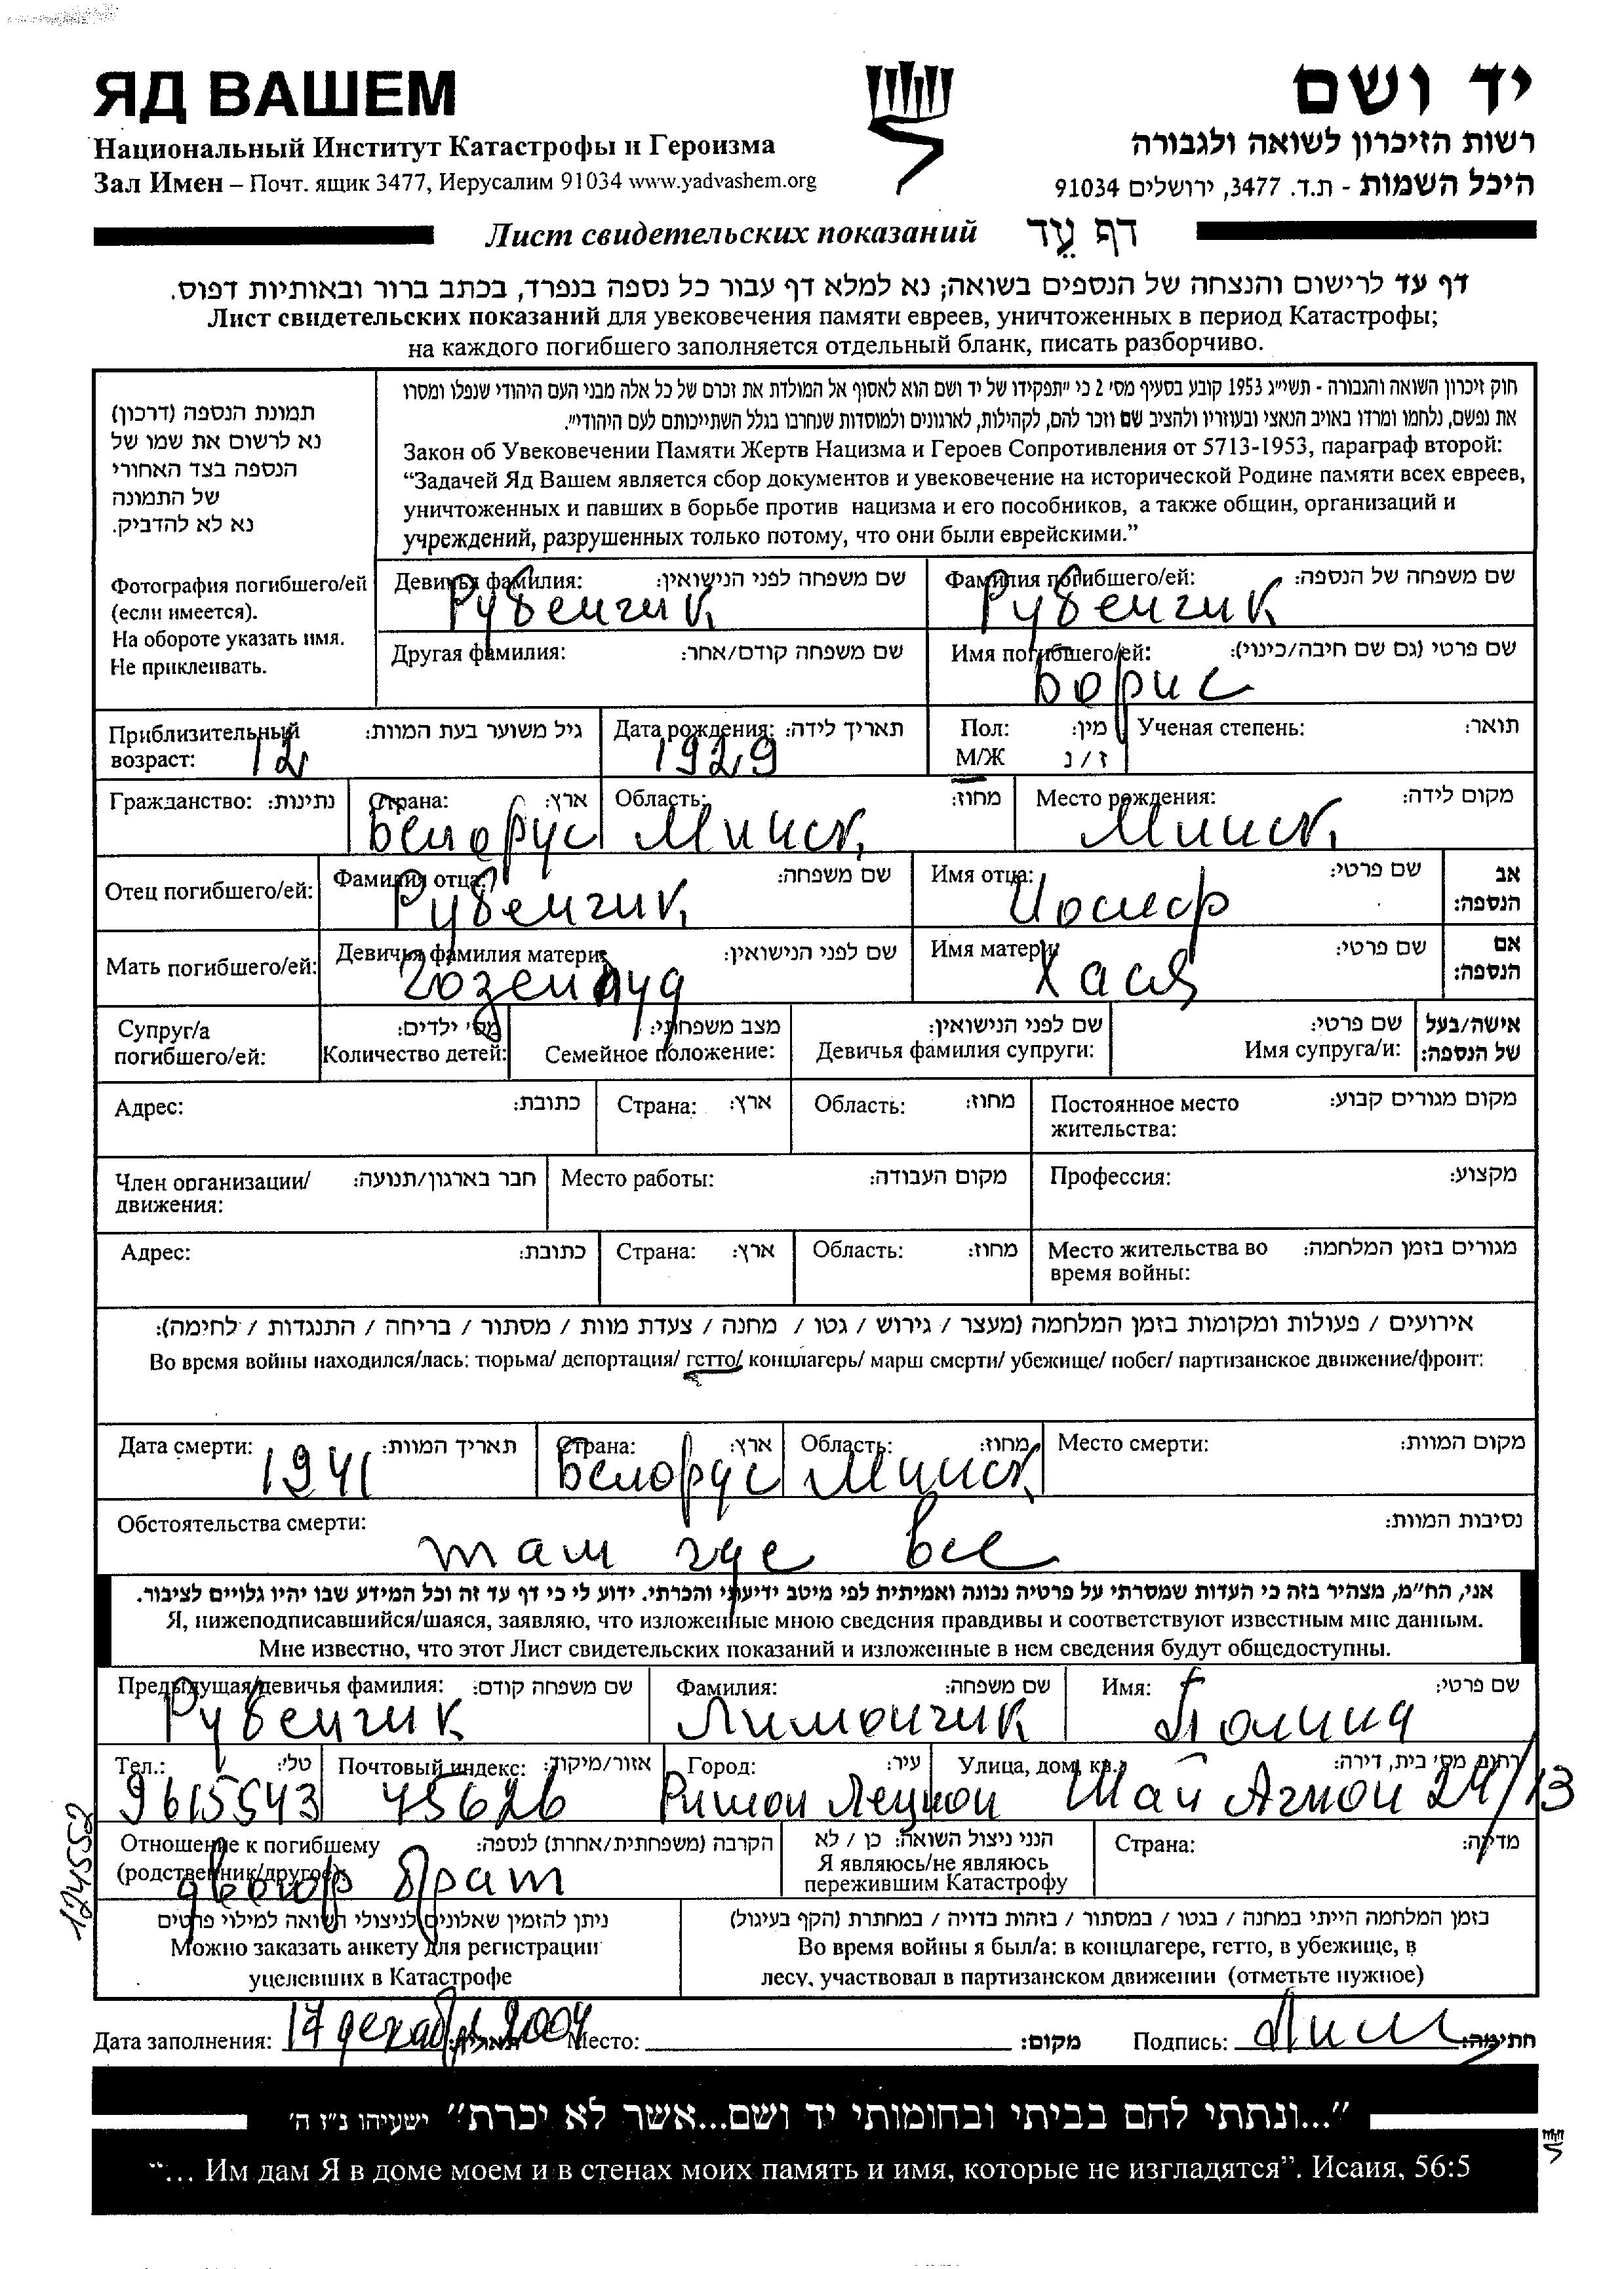 ЯД ВАШЕМ
יד ושם
Национальный Институт Катастрофы и Героизма
רשות הזיכרון לשואה ולגבורה
Зал Имен – Почт. ящик 3477, Иерусалим 91034 www.yadvashem.org
היכל השמות - ת.ד. 3477, ירושלים 91034
Лист свидетельских показаний דף עֵד
דף עד לרישום והנצחה של הנספים בשואה; נא למלא דף עבור כל נספה בנפרד, בכתב ברור ובאותיות דפוס.
Лист свидетельских показаний для увековечения памяти евреев, уничтоженных в период Катастрофы;
на каждого погибшего заполняется отдельный бланк, писать разборчиво.
תמונת הנספה (דרכון)
נא לרשום את שמו של
הנספה בצד האחורי
של התמונה
נא לא להדביק.
Фотография погибшего/ей
(если имеется).
На обороте указать имя.
Не приклеивать.
חוק זיכרון השואה והגבורה - תשי״ג 1953 קובע בסעיף מס׳ 2 כי ״תפקידו של יד ושם הוא לאסוף אל המולדת את זכרם של כל אלה מבני העם היהודי שנפלו ומסרו
את נפשם, נלחמו ומרדו באויב הנאצי ובעוזריו ולהציב שם וזכר להם, לקהילות, לארגונים ולמוסדות שנחרבו בגלל השתייכותם לעם היהודי״.
Закон об Увековечении Памяти Жертв Нацизма и Героев Сопротивления от 5713-1953, параграф второй:
“Задачей Яд Вашем является сбор документов и увековечение на исторической Родине памяти всех евреев,
уничтоженных и павших в борьбе против нацизма и его пособников, а также общин, организаций и
учреждений, разрушенных только потому, что они были еврейскими.”
Девичья фамилия: שם משפחה לפני הנישואין:
Рубенчик
Фамилия погибшего/ей: שם משפחה של הנספה:
Рубенчик
Другая фамилия: שם משפחה קודם/אחר:
Имя погибшего/ей: שם פרטי (גם שם חיבה/כינוי):
Борис
Приблизительный גיל משוער בעת המוות:
возраст: 12
Дата рождения: תאריך לידה:
1929
Пол: מין:
М/Ж ז / נ
Ученая степень: תואר:
Гражданство: נתינות:
Страна: ארץ:
Белорус
Область: מחוז:
Минск
Место рождения: מקום לידה:
Минск
Отец погибшего/ей:
Фамилия отца: שם משפחה:
Рубенчик
Имя отца: שם פרטי:
Иосиф
אב
הנספה:
Мать погибшего/ей:
Девичья фамилия матери: שם לפני הנישואין:
Имя матери: שם פרטי:
Хася
אם
הנספה:
Супруг/а
погибшего/ей:
מס׳ ילדים:
Количество детей:
מצב משפחתי:
Семейное положение:
שם לפני הנישואין:
Девичья фамилия супруги:
שם פרטי:
Имя супруга/и:
אישה/בעל
של הנספה:
Адрес: כתובת:
Страна: ארץ:
Область: מחוז:
Постоянное место מקום מגורים קבוע:
жительства:
Член организации/ חבר בארגון/תנועה:
движения:
Место работы: מקום העבודה:
Профессия: מקצוע:
Адрес: כתובת:
Страна: ארץ:
Область: מחוז:
Место жительства во מגורים בזמן המלחמה:
время войны:
אירועים / פעולות ומקומות בזמן המלחמה (מעצר / גירוש / גטו / מחנה / צעדת מוות / מסתור / בריחה / התנגדות / לחימה):
Во время войны находился/лась: тюрьма/ депортация/ гетто/ концлагерь/ марш смерти/ убежище/ побег/ партизанское движение/фронт:
Дата смерти: תאריך המוות:
1941
Страна: ארץ:
Белорус
Область: מחוז:
Минск
Место смерти: מקום המוות:
Обстоятельства смерти: נסיבות המוות:
там где все
אני, הח״מ, מצהיר בזה כי העדות שמסרתי על פרטיה נכונה ואמיתית לפי מיטב ידיעתי והכרתי. ידוע לי כי דף עד זה וכל המידע שבו יהיו גלויים לציבור.
Я, нижеподписавшийся/шаяся, заявляю, что изложенные мною сведения правдивы и соответствуют известным мне данным.
Мне известно, что этот Лист свидетельских показаний и изложенные в нем сведения будут общедоступны.
Предыдущая/девичья фамилия: שם משפחה קודם:
Рубенчик
Фамилия: שם משפחה:
Лимончик
Имя: שם פרטי:
Полина
Тел.: טל׳:
9615543
Почтовый индекс: אזור/מיקוד:
45626
Город: עיר:
Ришон Лецион
Улица, дом, кв.: רחוב, מס׳ בית, דירה:
Шай Агнон 24/13
Отношение к погибшему הקרבה (משפחתית/אחרת) לנספה:
(родственник/другое):
двоюр брат
הנני ניצול השואה: כן / לא
Я являюсь/не являюсь
пережившим Катастрофу
Страна: מדינה:
ניתן להזמין שאלונים לניצולי השואה למילוי פרטים
Можно заказать анкету для регистрации
уцелевших в Катастрофе
בזמן המלחמה הייתי במחנה / בגטו / במסתור / בזהות בדויה / במחתרת (הקף בעיגול)
Во время войны я был/а: в концлагере, гетто, в убежище, в
лесу, участвовал в партизанском движении (отметьте нужное)
124552
Дата заполнения: 17 декабря 2004 תאריך: Место: מקום: Подпись: Лим חתימה:
״...ונתתי להם בביתי ובחומותי יד ושם...אשר לא יכרת״ ישעיהו נ״ו ה׳
“... Им дам Я в доме моем и в стенах моих память и имя, которые не изгладятся”. Исаия, 56:5